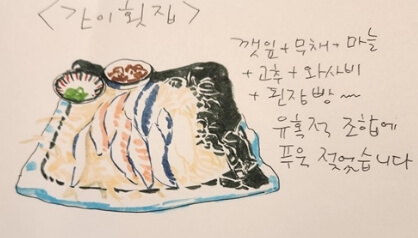 <간이횟집>
깻잎+무채+마늘
+고추+와사비
+된장빵~
유혹적 조합에
푸욱 젖었습니다